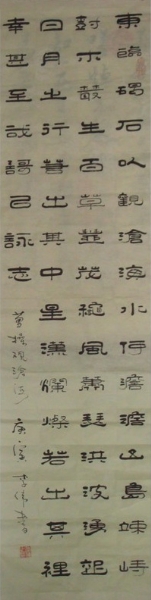 東臨碣石以觀滄海水何澹澹山島竦峙
樹木叢生百草豐茂秋風蕭瑟洪波湧起
日月之行若出其中星漢爛燦若出其裡
幸甚至哉謌以詠志
曹操观沧海 庚寅 李伟書